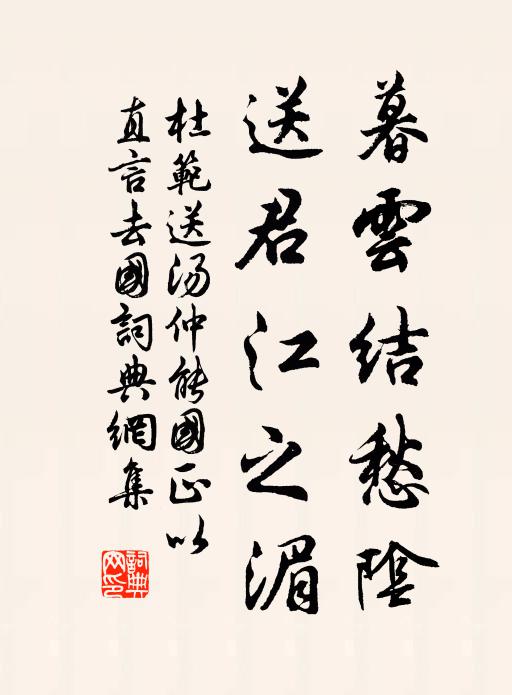 暮雲結愁陰
送君江之湄
杜範送湯仲能國正以
直言去國詞典網集
詞典網印